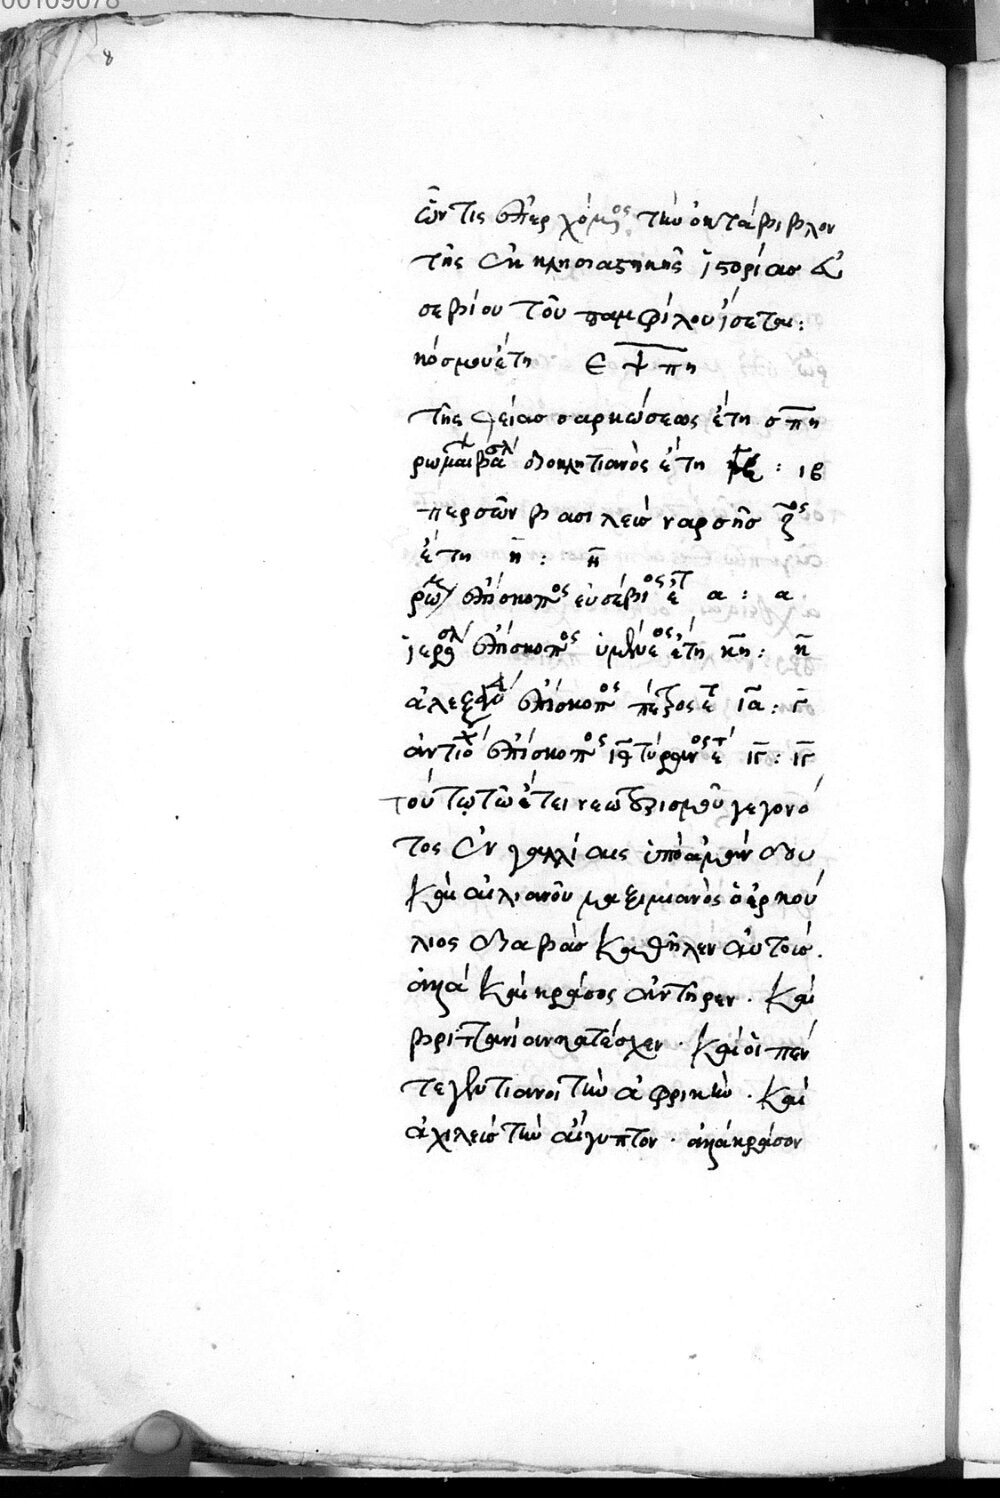 00109078
8
ὧν τις ἐπερχόμενος τὴν ὀκτάβιβλον
τῆς ἐκκλησιαστικῆς ἱστορίας εὐ
σεβίου τοῦ παμφίλου εἴσεται:
κόσμου ἔτη ͵ε ψ π η
τῆς θείας σαρκώσεως ἔτη σ π η
ρωμαί βασιλ διοκλητιανὸς ἔτη : ιβ
περσῶν βασιλεὺς ναρσῆς ζος
ἔτη η : η
ρώμ ἐπίσκοπος εὐσέβιος ἔτ α : α
ἱεροσολ ἐπίσκοπος ὑμέναιος ἔτη κη : η
ἀλεξανδ ἐπίσκοπος πέτρος ἔτ ια : γ
ἀντιοχ ἐπίσκοπος ιθ τύραννος ἔτ ιγ : ιγ
τούτῳ τῶ ἔτει νεωτερισμοῦ γεγονό
τος ἐν γαλλίαις ὑπὸ ἀμάνδου
καὶ αἰλιανοῦ μαξιμιανὸς ὁ ἑρκού
λιος διαβὰς καθεῖλεν αὐτούς.
ἀλλὰ καὶ κράσος ἀντῆρεν. καὶ
βριττανίαν κατέσχεν. καὶ οἱ πεν
τεγεντιανοὶ τὴν ἀφρικήν. καὶ
ἀχιλεὺς τὴν αἴγυπτον. ἀλλὰ κράσον